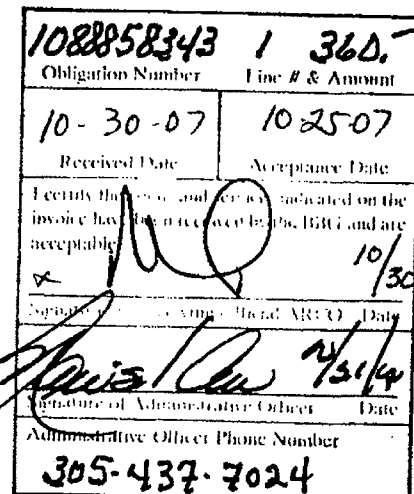 1088858343 1 360.-
Obligation Number Line # & Amount
10-30-07 10-25-07
Received Date Acceptance Date
I certify the and indicated on the
invoice have been received by the BBG and are
acceptable
10/30
Signature Official ARCO Date
Signature of Administrative Officer Date
Administrative Officer Phone Number
305-437-7024